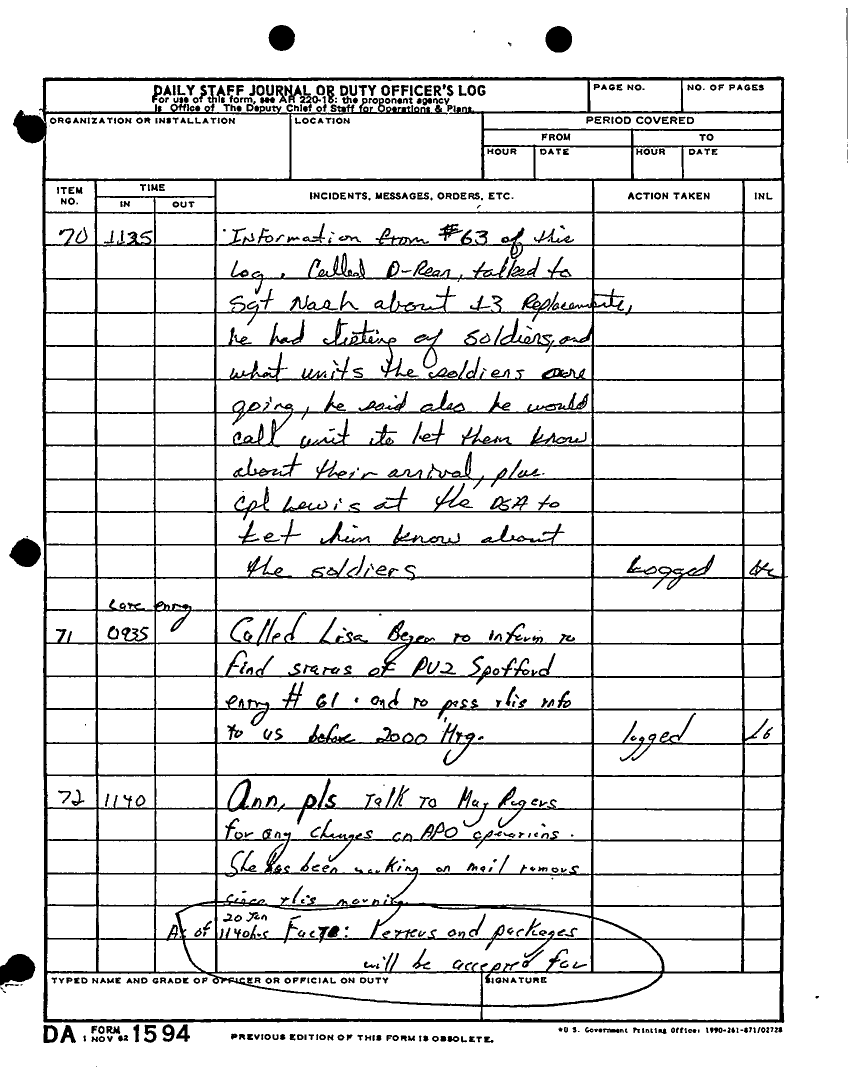 DAILY STAFF JOURNAL OR DUTY OFFICER'S LOG
For use of this form, see AR 220-15; the proponent agency
is Office of The Deputy Chief of Staff for Operations & Plans.
PAGE NO.
NO. OF PAGES
ORGANIZATION OR INSTALLATION
LOCATION
PERIOD COVERED
FROM
TO
HOUR
DATE
HOUR
DATE
ITEM NO.
TIME
IN
OUT
INCIDENTS, MESSAGES, ORDERS, ETC.
ACTION TAKEN
INL
70 1135 Information from #63 of this
Log. Called D-Rear, talked to
Sgt Nash about 13 Replacements,
he had listing of soldiers, and
what units the soldiers were
going, he said also he would
call unit to let them know
about their arrival, plus
Cpl Lewis at the DSA to
Let him know about
the soldiers Logged
Late entry
71 0935 Called Lisa to inform to
find status of PV2 Spofford
entry # 61. and to pass this info
to us before 2000 Mtg. logged LB
72 1140 Ann, pls Talk To Maj Rogers
for any changes on APO operations.
She has been working on mail rumors
since this morning.
As of 20 Jan 1140hrs Facts: Letters and packages
will be accepted for
TYPED NAME AND GRADE OF OFFICER OR OFFICIAL ON DUTY
SIGNATURE
DA FORM 1 NOV 62 1594
PREVIOUS EDITION OF THIS FORM IS OBSOLETE.
*U S. Government Printing Office: 1990-261-871/02728